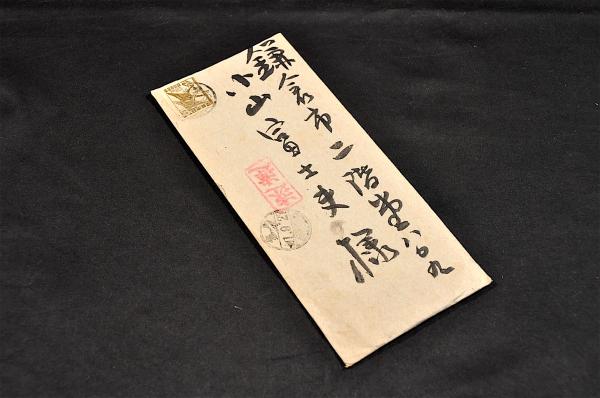 鎌倉市二階堂八〇九
小山冨士夫様
速達